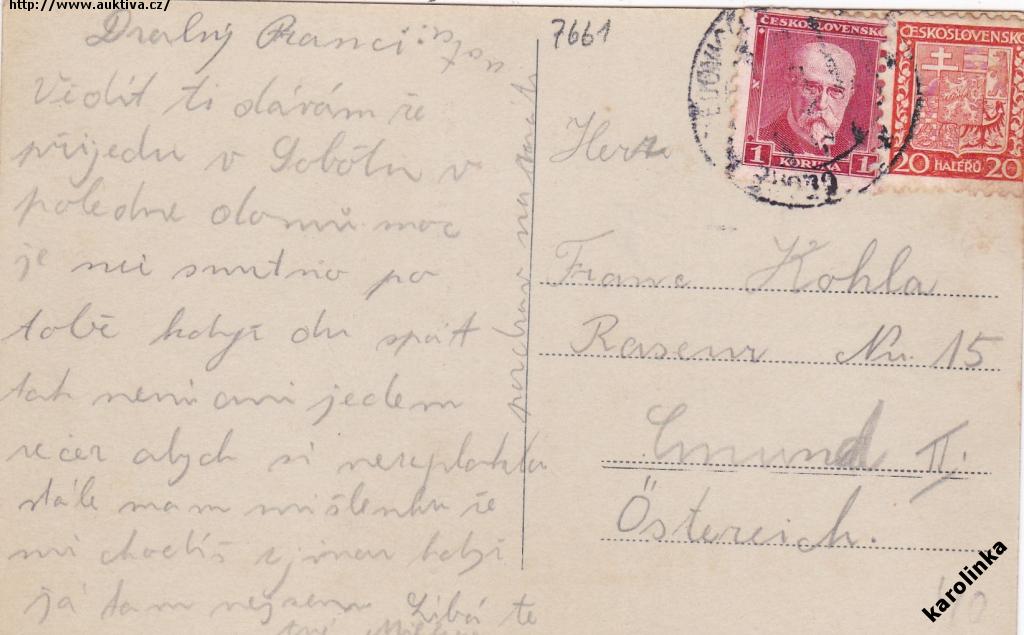 http://www.auktiva.cz/
7661
Drahý Franci
Vědít ti dávám že
přijedu v Sobótu v
poledne domů moc
je mi smutno po
tobě když du spátt
tak není ani jedem
večer abych si neseplakla
stále mam mišlenku že
mi chodíš z jinou když
já tam nejsem Líbá te
tvá
ČESKOSLOVENSKO
1 KORUNA 1
ČESKOSLOVENSKO
20 HALÉŘŮ 20
Herr
Franc Kohla
Rasenr Nu. 15
Gmund II.
Östereich.
karolinka